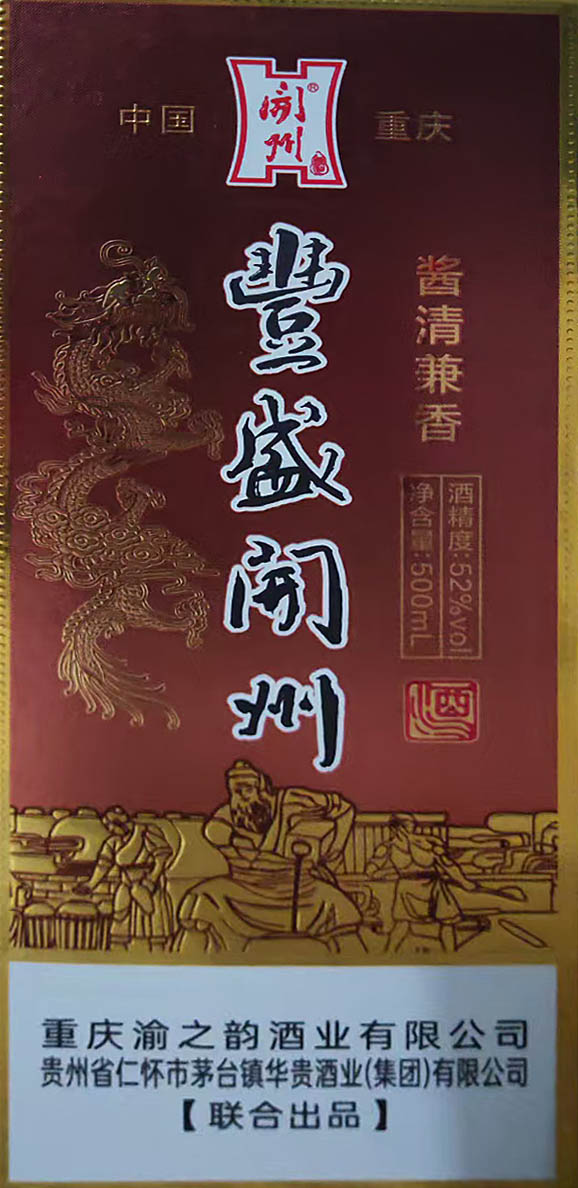 中国
開州®
重庆
豐盛開州
酱清兼香
酒精度:52%vol
净含量:500mL
酒
重庆渝之韵酒业有限公司
贵州省仁怀市茅台镇华贵酒业(集团)有限公司
【联合出品】